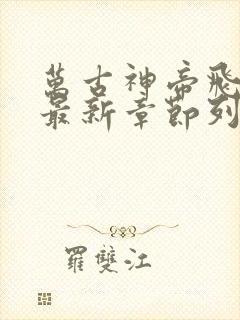 萬古神帝飛
最新章節列
羅雙江